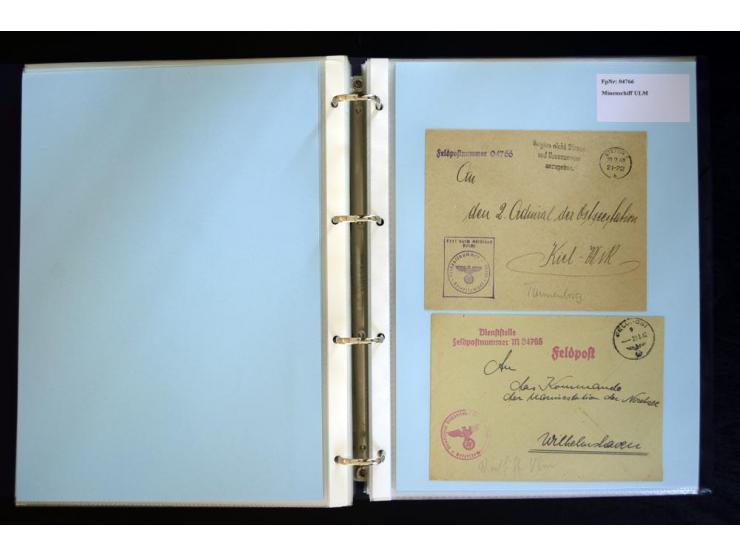 FpNr: 04766
Minenschiff ULM
Feldpostnummer 04766
Vergiss nicht Strasse
und Hausnummer
anzugeben
21-22
An
den 2. Admiral der Ostseestation
Kiel - Wik
Tannenberg
Dienststelle
Feldpostnummer M 04766
Feldpost
An
das Kommando
der Marinestation der Nordsee
Wilhelmshaven